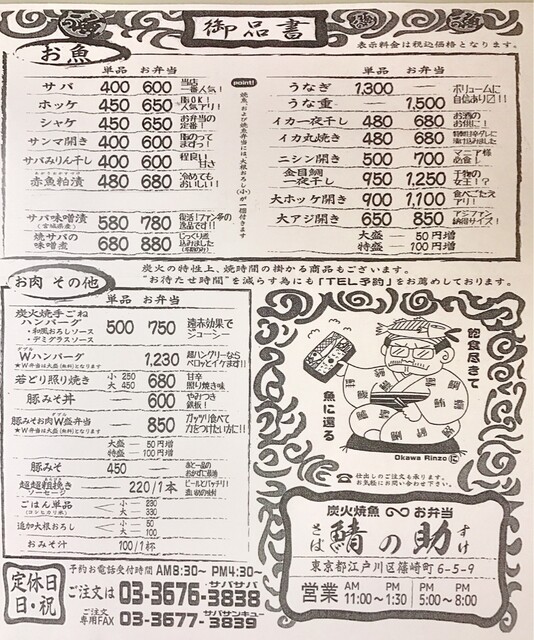 御品書
表示料金は税込価格となります。
お魚
単品 お弁当
サバ 400 600 当店一番人気!
ホッケ 450 650 人気アリ!
シャケ 450 650 お弁当の定番!
サンマ開き 400 600
サバみりん干し 400 600 程良い甘さ
赤魚粕漬 480 680 冷めてもおいしい!
サバ味噌漬 580 780 復活!ファン多の逸品です!!
焼サバの味噌煮 680 880 じっくり煮込みました
point!
焼魚、および焼魚弁当には、大根おろし(小)が一個付きます
単品 お弁当
うなぎ 1,300 ボリュームに自信あり!!
うな重 1,500
イカ一夜干し 480 680 お酒のお供に!
イカ丸焼き 480 680
ニシン開き 500 700 マニア様必食!
金目鯛一夜干し 950 1,250 干物の女王!?
大ホッケ開き 900 1,100 食べごたえアリ!
大アジ開き 650 850 アジファン納得サイズ!
大盛 — 50円増
特盛 — 100円増
炭火の特性上、焼時間の掛かる商品もございます。
“お待たせ時間”を減らす為にも「TEL予約」をお薦めしております。
お肉 その他
単品 お弁当
炭火焼手ごねハンバーグ 500 750 遠赤効果でジューシー
・和風おろしソース
・デミグラスソース
Wハンバーグ 1,230 超ハングリーならペロッとイケます!
★W弁当は大盛(無料)となります
若どり照り焼き 小 250 大 450 680 甘辛照り焼き味
豚みそ丼 600 やみつき鉄板!
豚みそお肉W盛弁当 850 ガッツリ食べて力をつけたい方に!!
★W弁当は大盛(無料)となります
大盛 — 50円増
特盛 — 100円増
豚みそ 450 あと一品のおかずに最適
超超粗挽きソーセージ 220/1本 ビールとバッチリ!
ごはん単品 小 — 230
(コシヒカリ米) 大 — 330
追加大根おろし 小 — 50
大 — 100
おみそ汁 100/1杯
飽食尽きて
魚に還る
Okawa Rinzo
仕出しのご注文も承ります。
お気軽にお問い合わせ下さい。
炭火焼魚 お弁当
さば 鯖の助 すけ
東京都江戸川区篠崎町6-5-9
営業 AM 11:00〜PM 1:30 PM 5:00〜PM 8:00
定休日
日・祝
予約お電話受付時間 AM8:30〜 PM4:30〜
サバサバ
ご注文は 03-3676-3838
サバサンキュー
ご注文専用FAX 03-3677-3839